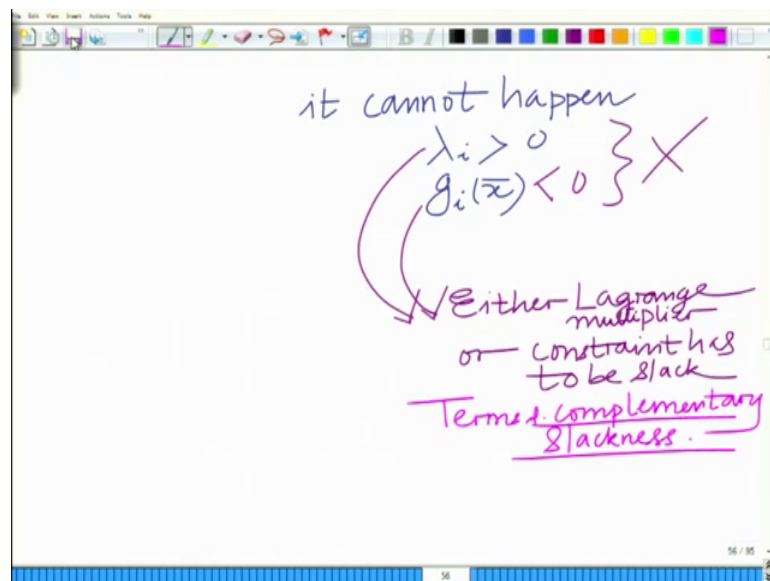 File Edit View Insert Actions Tools Help
B I
it cannot happen
λi > 0
gi(x̄) < 0
Either Lagrange
multiplier
or constraint has
to be slack
Termed complementary
slackness.
56 / 95
56